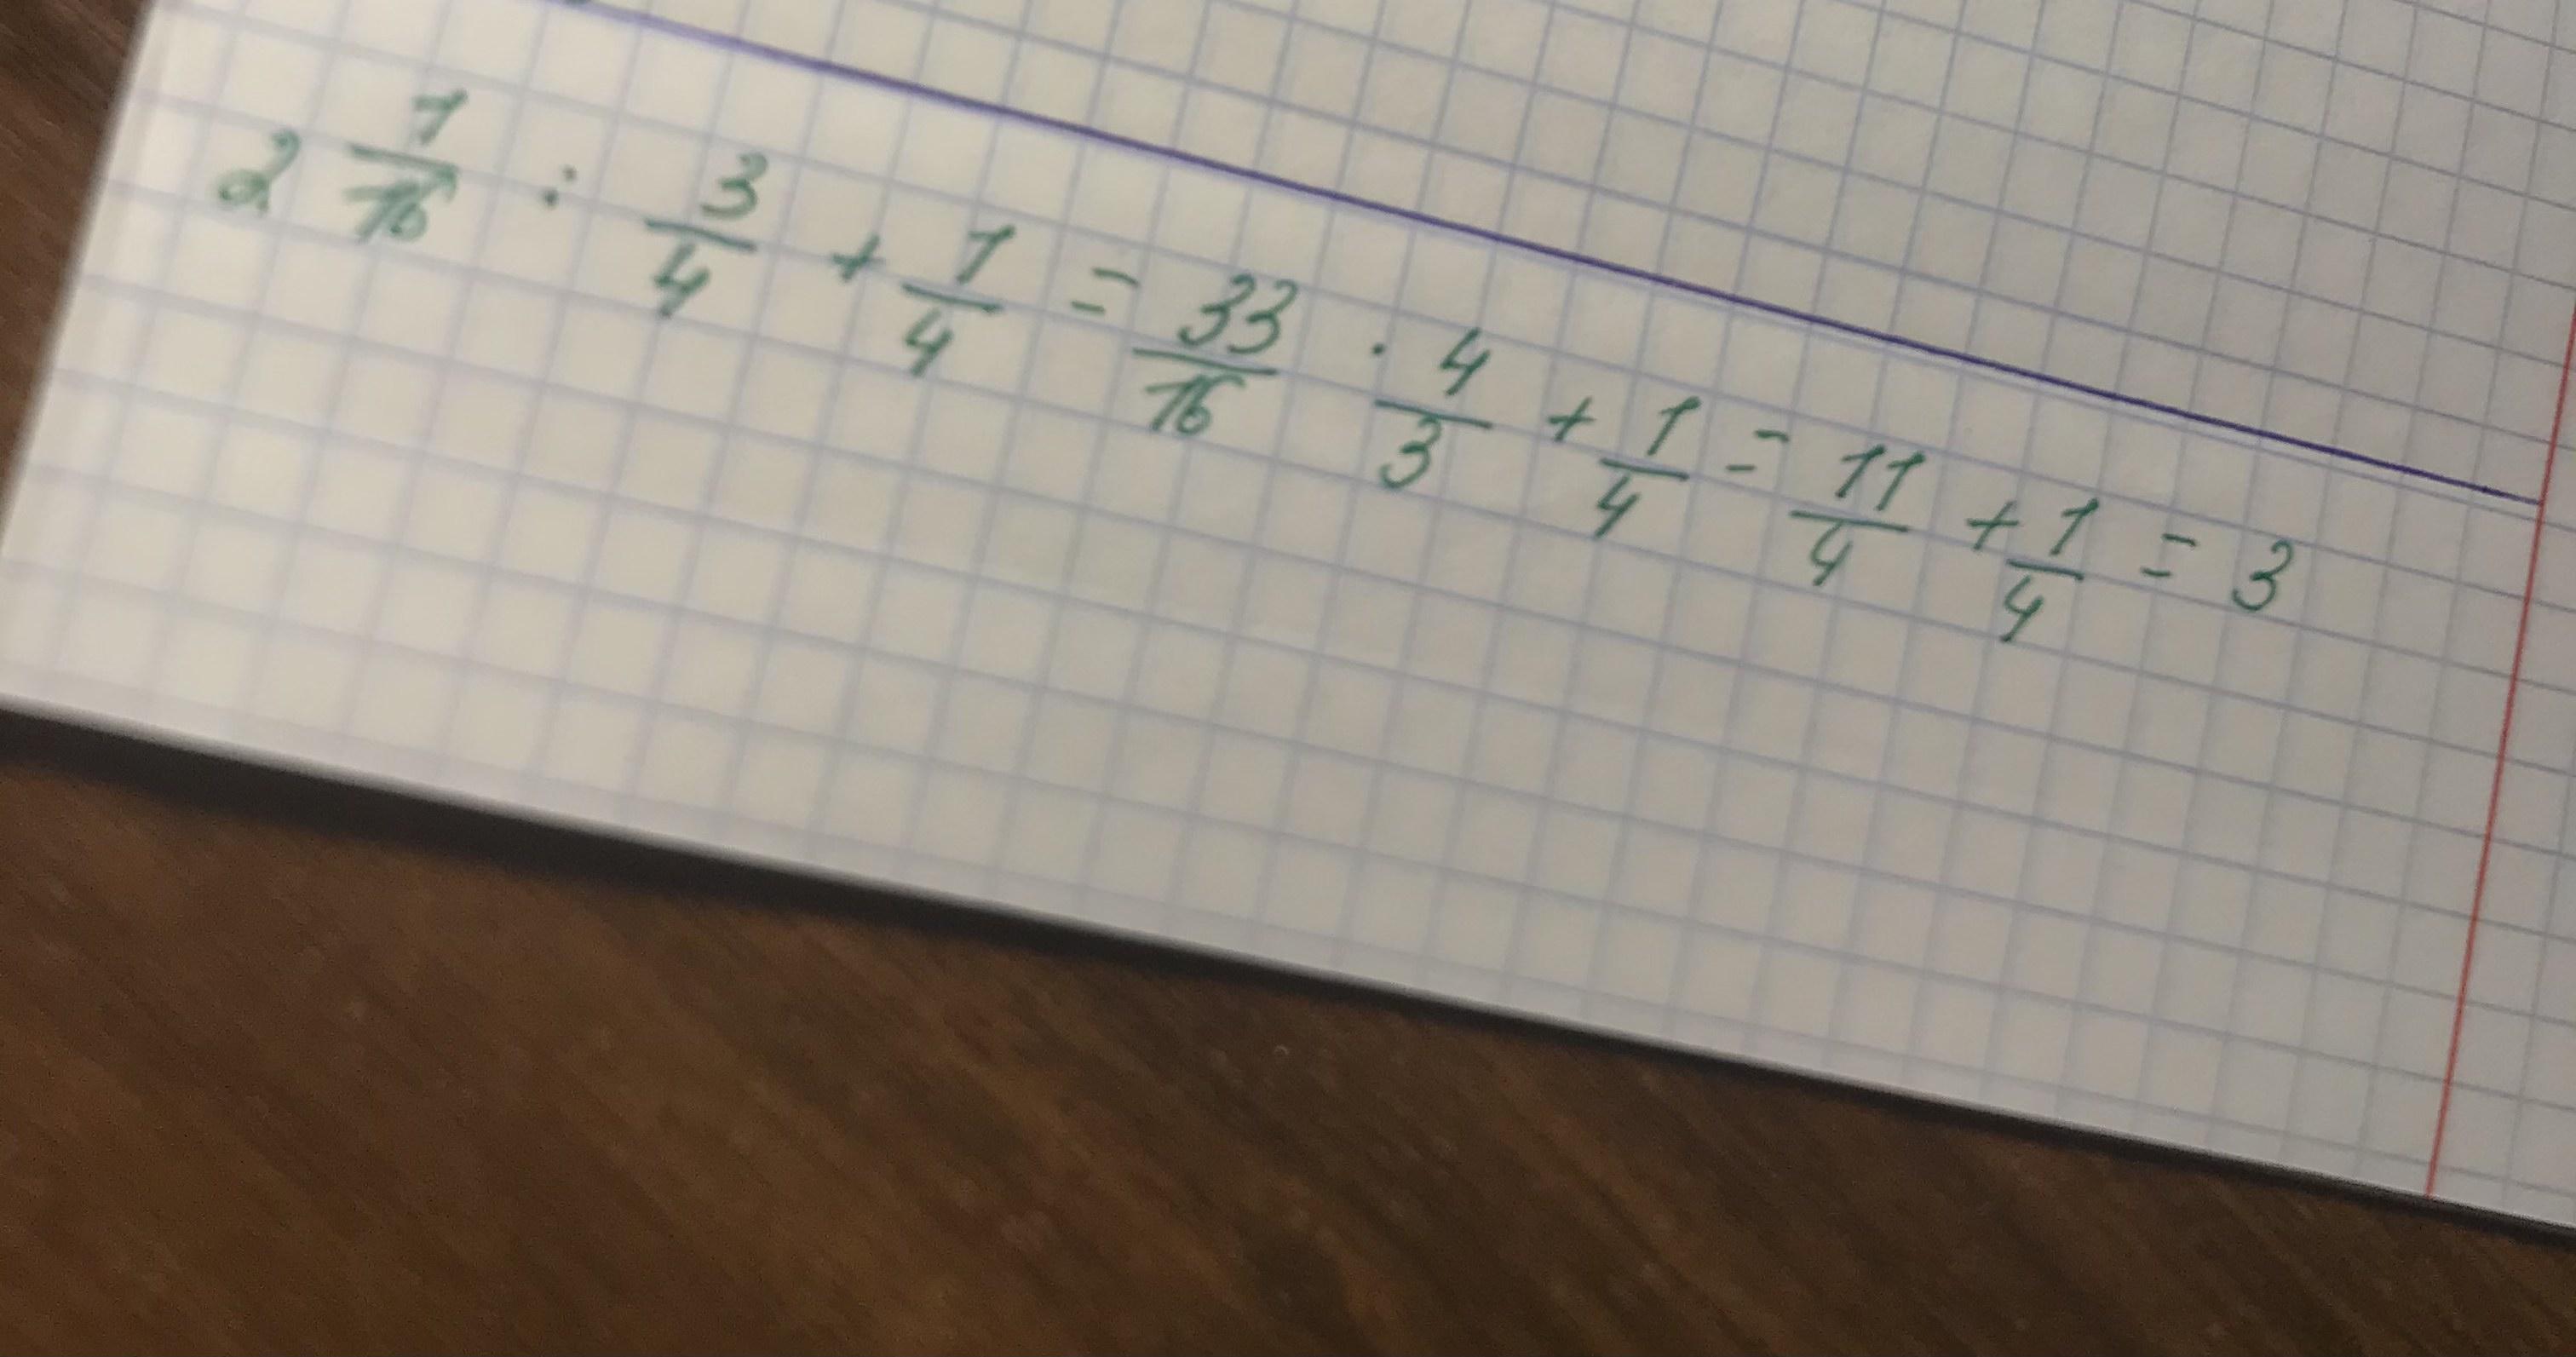 2 1/16 : 3/4 + 1/4 = 33/16 · 4/3 + 1/4 = 11/4 + 1/4 = 3